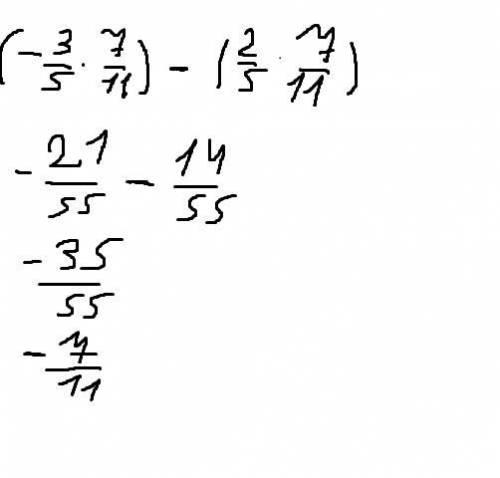 (-3/5 · 7/11) - (2/5 · 7/11)
-21/55 - 14/55
-35/55
-7/11